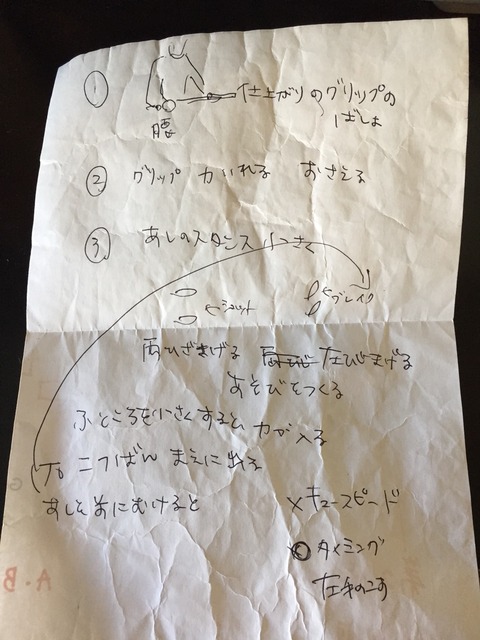 ① 仕上がりのグリップの
ばしょ
腰
② グリップ 力いれる おさえる
③ あしのスタンス 小さく
←ショット
←ブレイク
両ひざまげる 左ひざまげる
あそびをつくる
ふところを小さくすると力が入る
こつばん まえに出る
あしを前にむけると
×キュースピード
タイミング
左手のこす
A・B